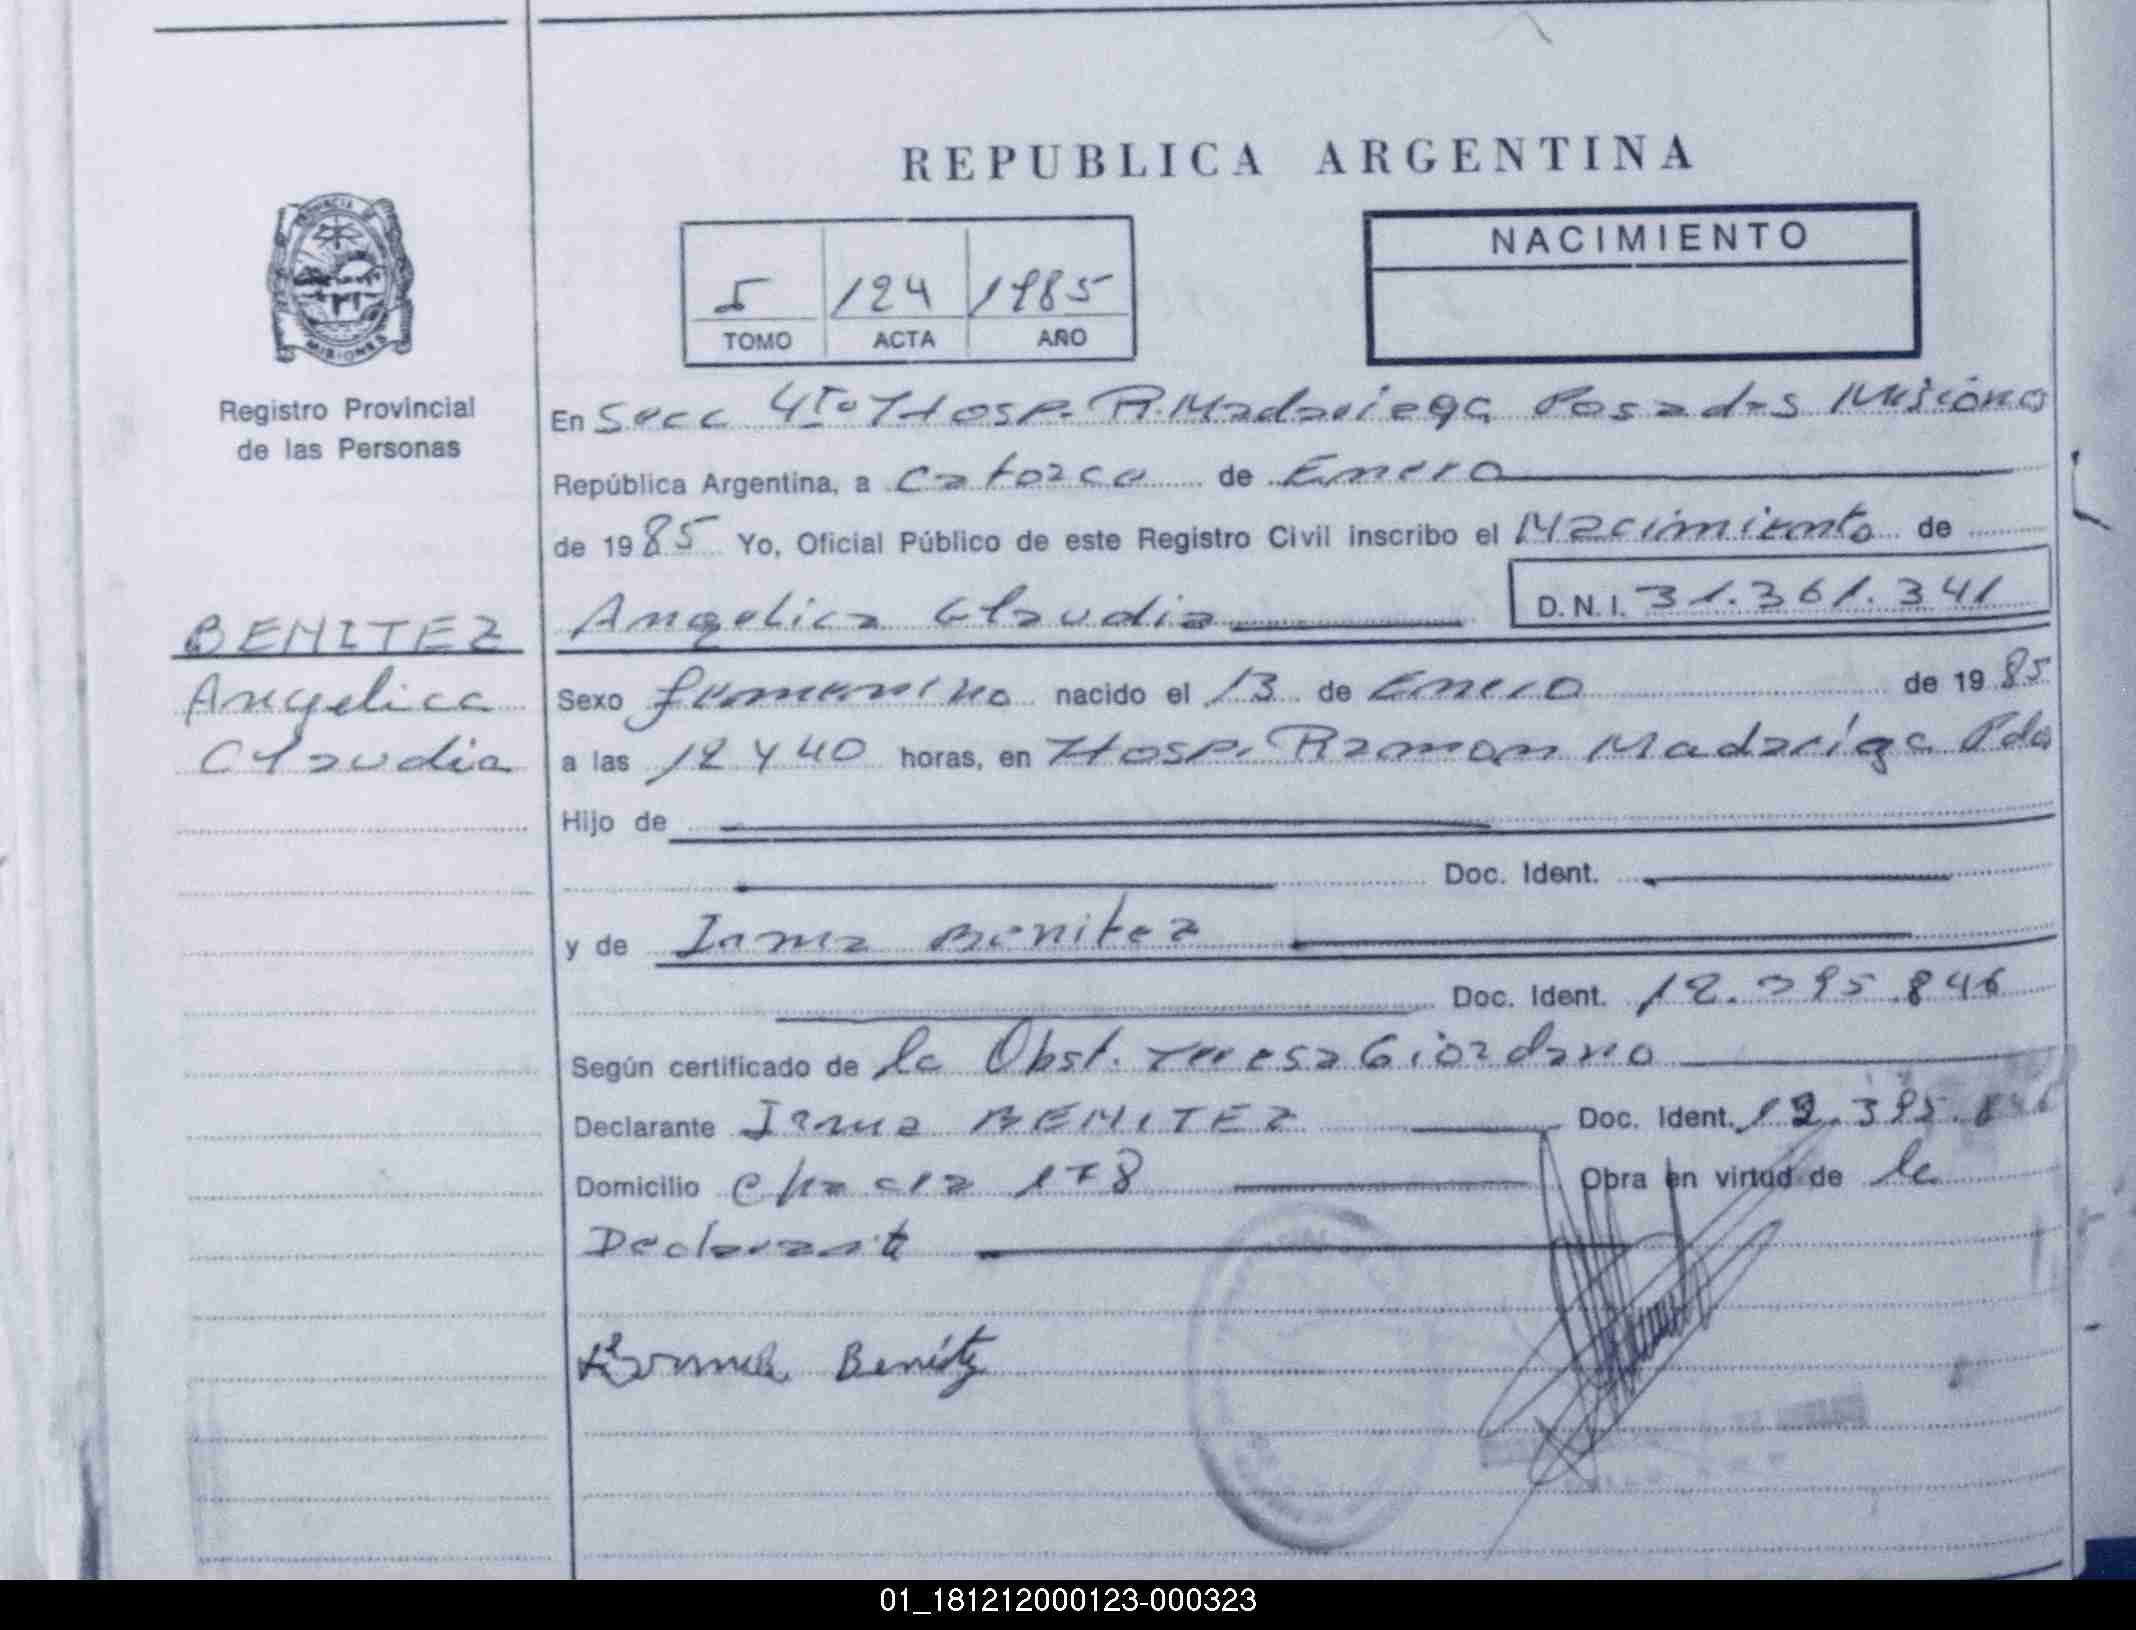 REPUBLICA ARGENTINA
PROVINCIA DE
MISIONES
Registro Provincial
de las Personas
5 124 1985
TOMO ACTA AÑO
NACIMIENTO
En Secc 4ta Hosp. R. Madariaga Posadas Misiones
República Argentina, a catorce de Enero
de 1985 Yo, Oficial Público de este Registro Civil inscribo el Nacimiento de
BENITEZ
Angelica
Claudia
Angelica Claudia D.N.I. 31.361.341
Sexo femenino nacido el 13 de Enero de 1985
a las 12 y 40 horas, en Hosp. Ramon Madariaga Pdas
Hijo de
Doc. Ident.
y de Irma Benitez
Doc. Ident. 12.395.846
Según certificado de la Obst. Teresa Giordano
Declarante Irma BENITEZ Doc. Ident. 12.395.846
Domicilio Chacra 178 Obra en virtud de la
Declarante
Benitez
01_181212000123-000323